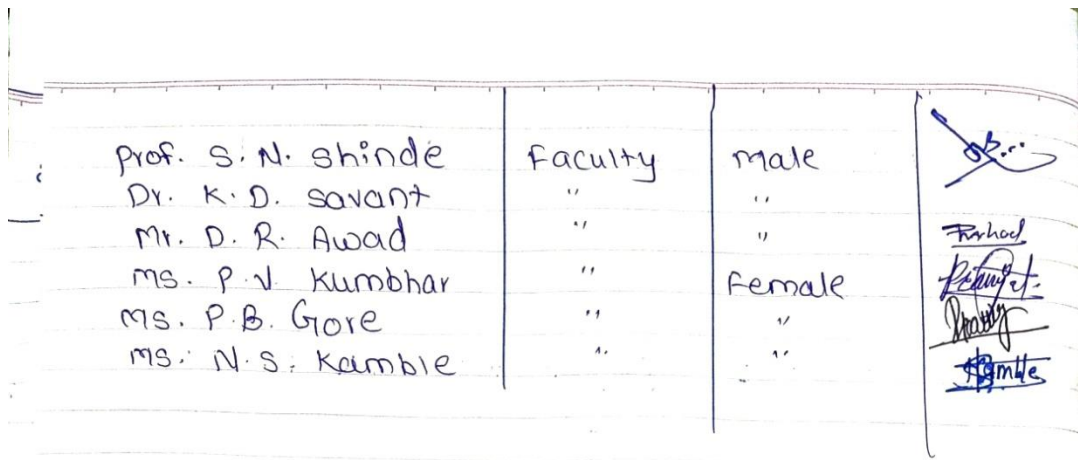 Prof. S. N. Shinde Faculty male
Dr. K. D. Savant " "
Mr. D. R. Awad " "
ms. P. V. Kumbhar " Female
ms. P. B. Gore " "
ms. N. S. Kamble " " Kamble